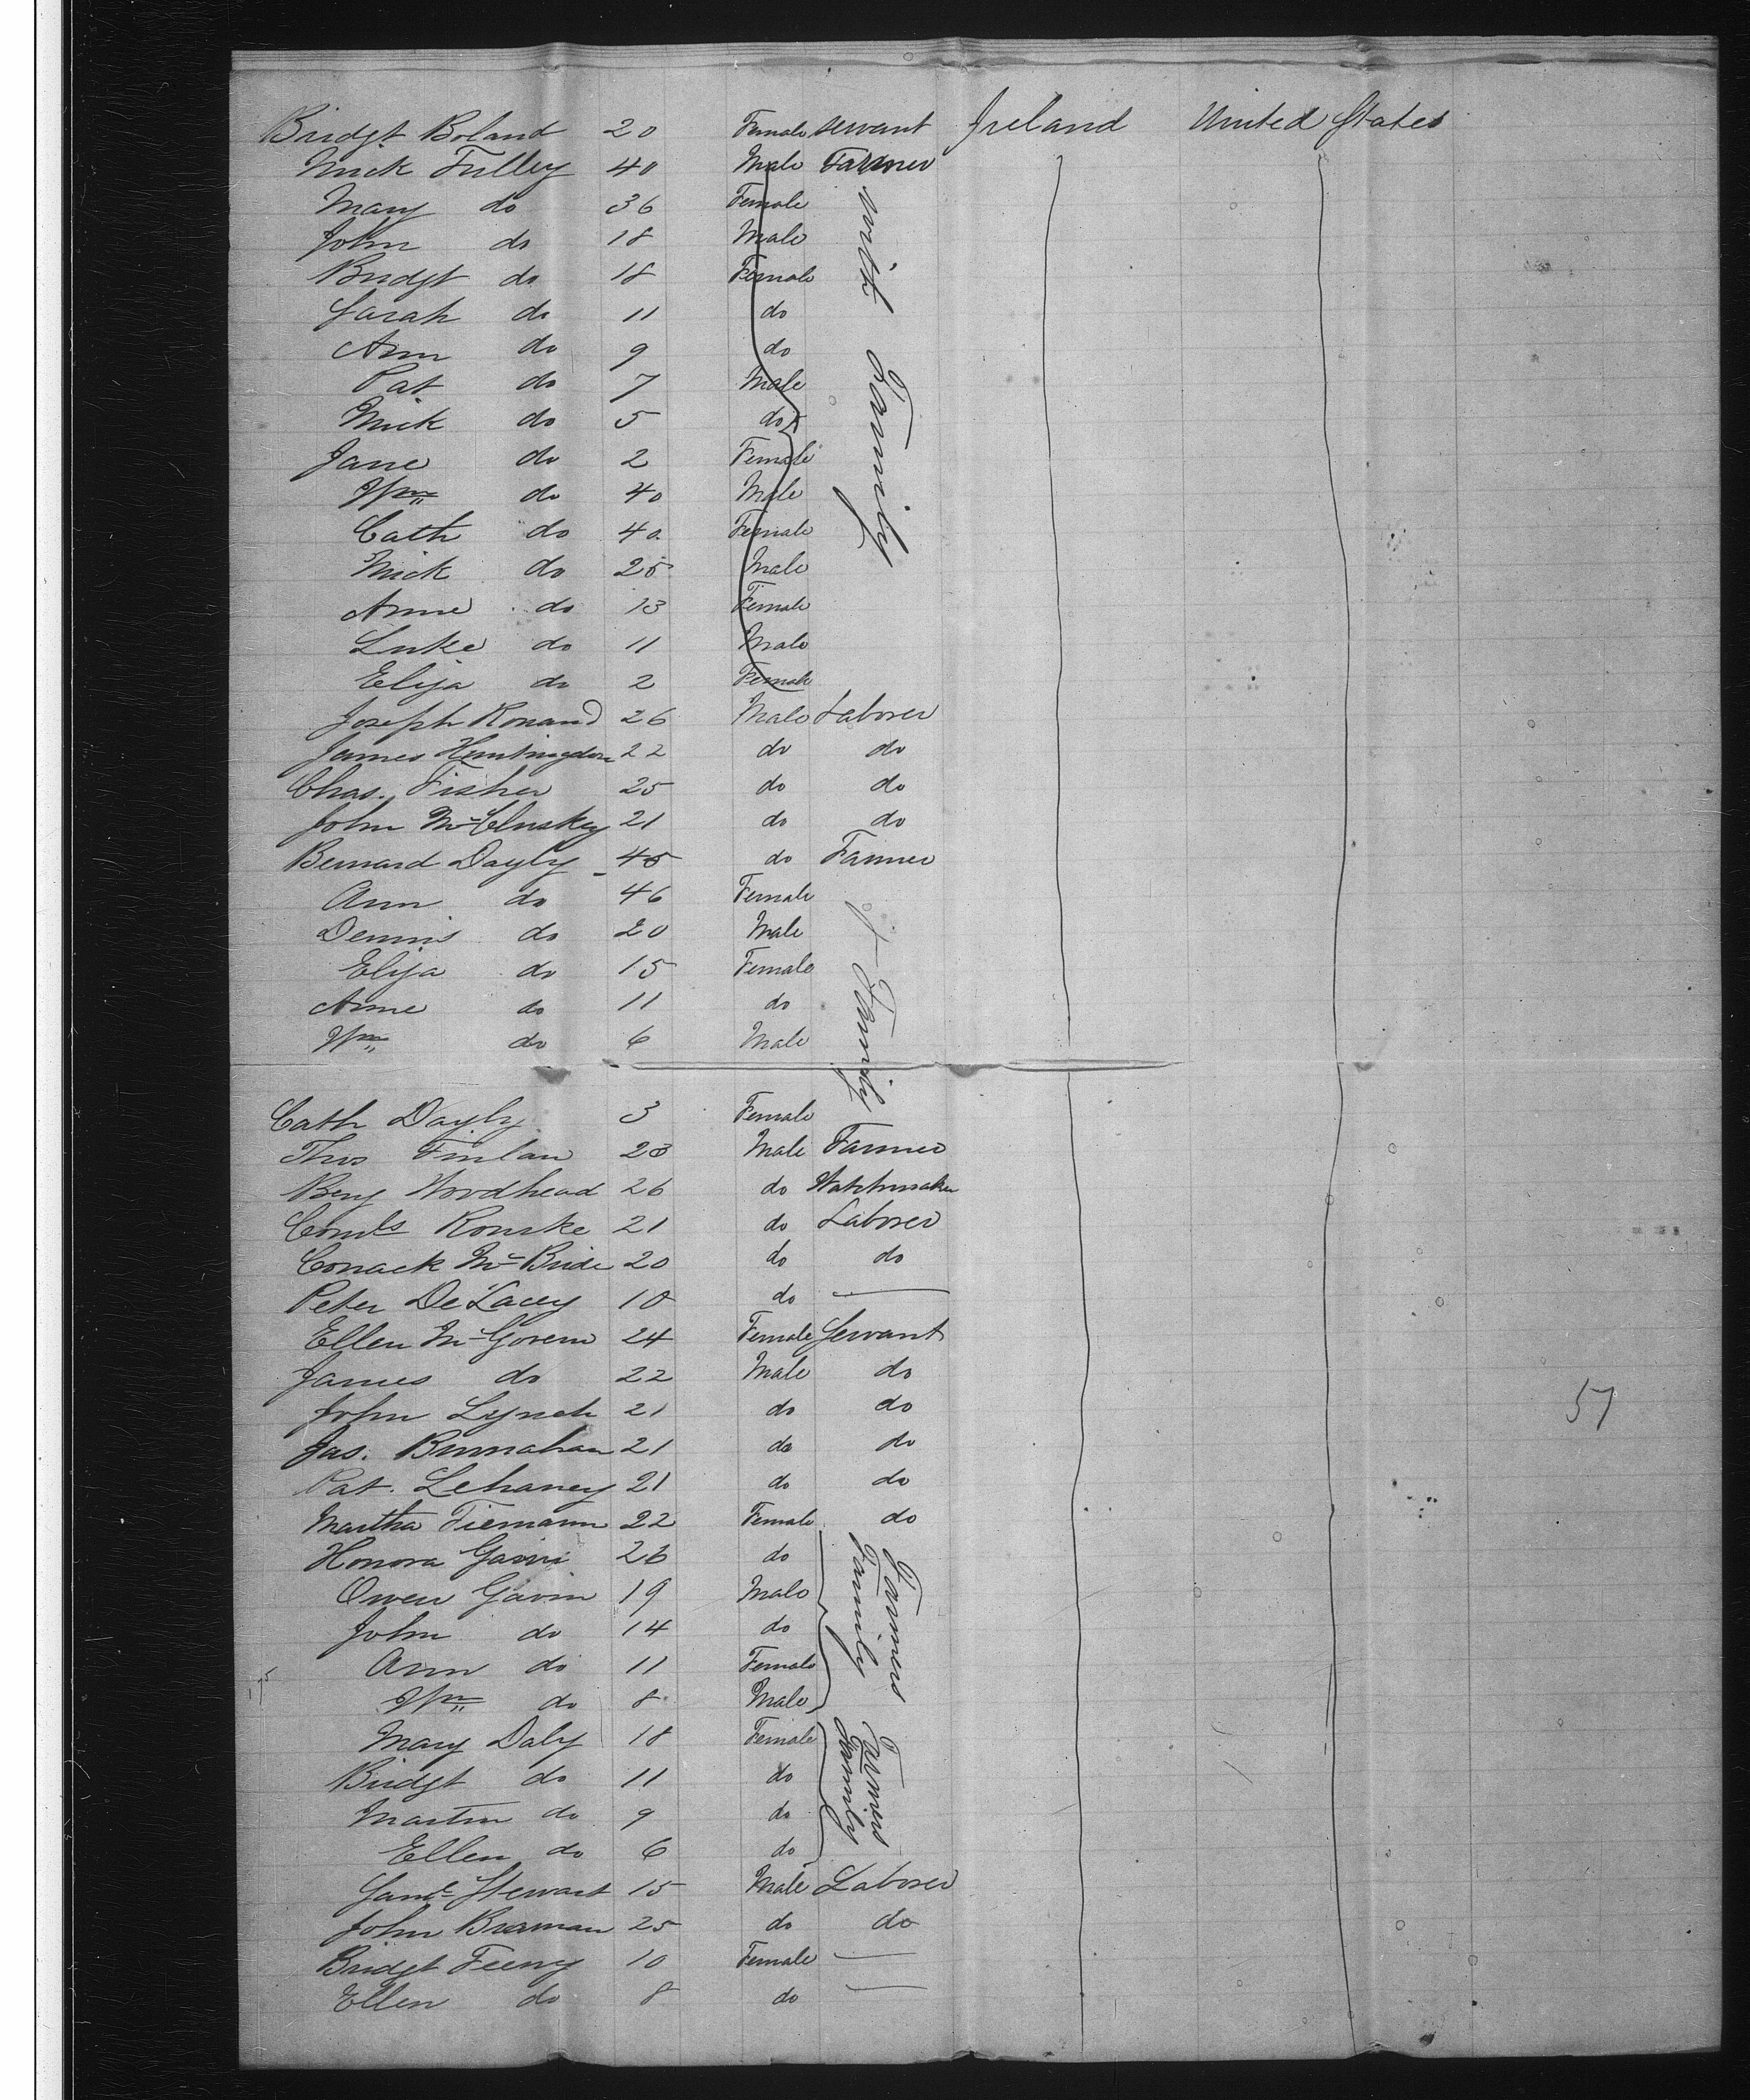 Bridgt Boland 20 Female servant Ireland United States
Mick Tulley 40 Male Farmer
Mary do 36 Female
John do 18 Male
Bridgt do 18 Female
Sarah do 11 do
Ann do 9 do
Pat do 7 Male
Mick do 5 do
Jane do 2 Female
Wm do 40 Male
Cath do 40 Female
Mick do 25 Male
Anne do 13 Female
Luke do 11 Male
Eliza do 2 Female
with Family
Joseph Ronand 26 Male Laborer
James Huntingdon 22 do do
Chas. Fisher 25 do do
John McCluskey 21 do do
Bernard Dayly 45 do Farmer
Ann do 46 Female
Dennis do 20 Male
Eliza do 15 Female
Anne do 11 do
Wm do 6 Male
Family
Cath Dayly 3 Female
Thos Finlan 23 Male Farmer
Benj Woodhead 26 do Watchmaker
Conls Rourke 21 do Laborer
Conack McBride 20 do do
Peter DeLacey 18 do —
Ellen McGovern 24 Female Servant
James do 22 Male do
John Lynch 21 do do
Jas. Brunahan 21 do do
Pat. Lehaney 21 do do
Martha Tiemann 22 Female do
Honora Gavin 26 do
Owen Gavin 19 Male
John do 14 do
Ann do 11 Female
Wm do 8 Male
Farmers Family
Mary Daly 18 Female
Bridgt do 11 do
Martin do 9 do
Ellen do 6 do
Farmers Family
Saml Stewart 15 Male Laborer
John Brennan 25 do do
Bridgt Feeny 10 Female —
Ellen do 8 do —
57